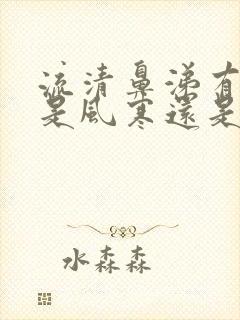 流清鼻涕有
是風寒還是
水森森